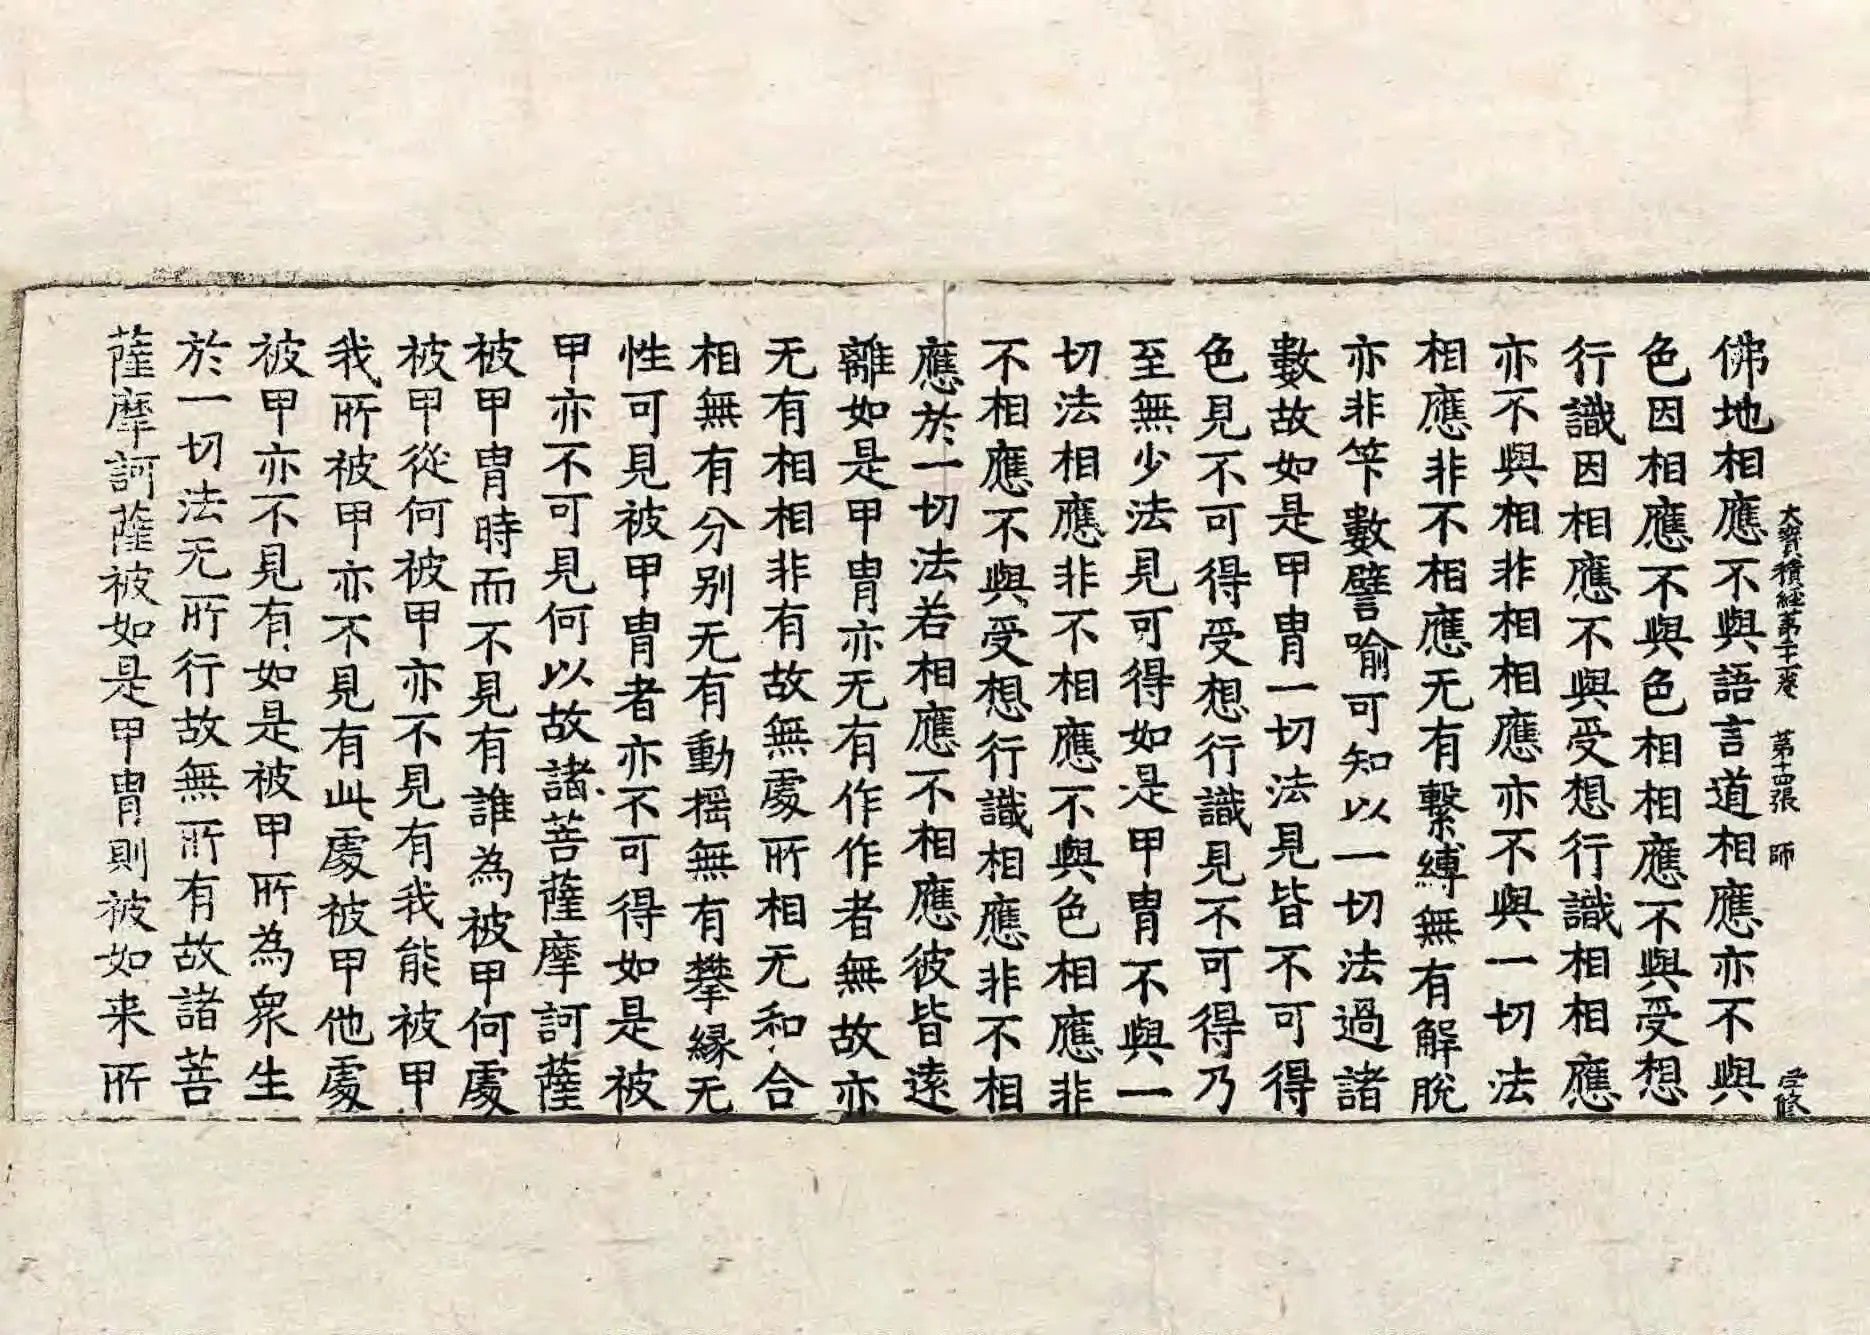 大寳積経苐廿一卷 苐十四張 師
佛地相應不與語言道相應亦不與
色因相應不與色相相應不與受想
行識因相應不與受想行識相相應
亦不與相非相相應亦不與一切法
相應非不相應无有繫縛無有解脫
亦非笇數譬喻可知以一切法過諸
數故如是甲冑一切法見皆不可得
色見不可得受想行識見不可得乃
至無少法見可得如是甲冑不與一
切法相應非不相應不與色相應非
不相應不與受想行識相應非不相
應於一切法若相應不相應彼皆遠
離如是甲冑亦无有作作者無故亦
无有相相非有故無處所相无和合
相無有分别无有動揺無有攀縁无
性可見被甲冑者亦不可得如是被
甲亦不可見何以故諸菩薩摩訶薩
被甲冑時而不見有誰為被甲何處
被甲從何被甲亦不見有我能被甲
我所被甲亦不見有此處被甲他處
被甲亦不見有如是被甲所為衆生
於一切法无所行故無所有故諸菩
薩摩訶薩被如是甲冑則被如来所